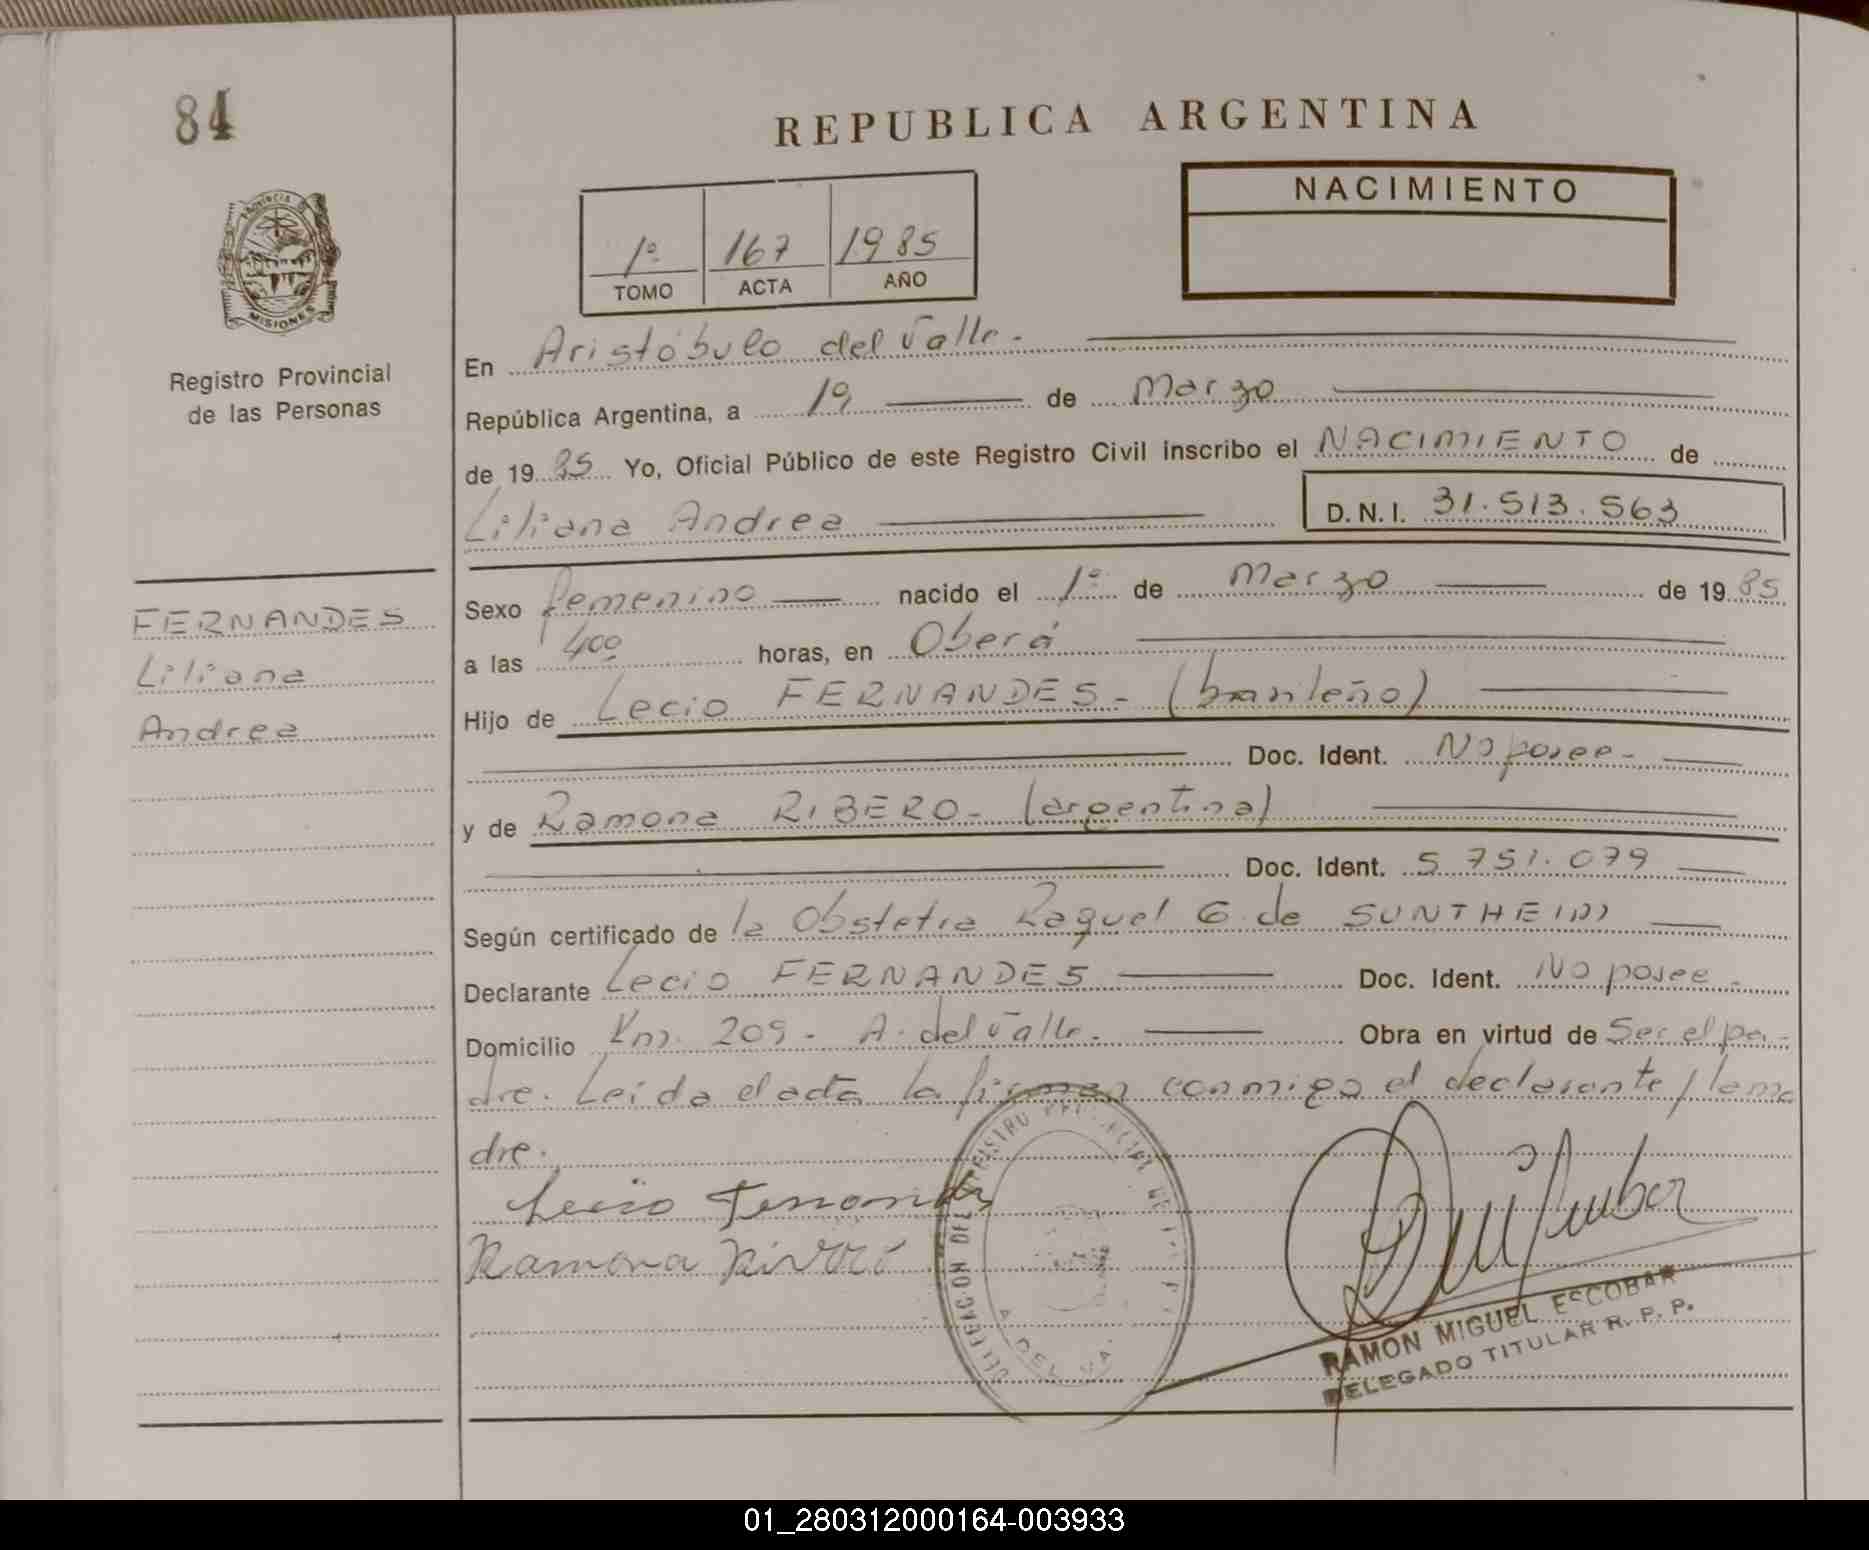 84
REPUBLICA ARGENTINA
NACIMIENTO
1º 167 1985
TOMO ACTA AÑO
PROVINCIA D
MISIONES
Registro Provincial
de las Personas
En Aristóbulo del Valle.
República Argentina, a 19 de Marzo
de 1985 Yo, Oficial Público de este Registro Civil inscribo el NACIMIENTO de
Liliana Andrea D.N.I. 31.513.563
FERNANDES
Liliana
Andrea
Sexo femenino nacido el 1º de Marzo de 1985
a las 400 horas, en Oberá
Hijo de Lecio FERNANDES- (brasileño)
Doc. Ident. No posee-
y de Ramona RIBERO- (argentina)
Doc. Ident. 5.751.079
Según certificado de la Obstetra Raquel G. de SUNTHEIM
Declarante Lecio FERNANDES Doc. Ident. No posee-
Domicilio Km. 209- A. del Valle. Obra en virtud de Ser el pa-
dre. Leída el acta la firman conmigo el declarante / la ma
dre.
Lecio
Ramona
DELEGACION DEL REGISTRO
A. DEL VA
RAMON MIGUEL ESCOBAR
DELEGADO TITULAR R. P. P.
01_280312000164-003933